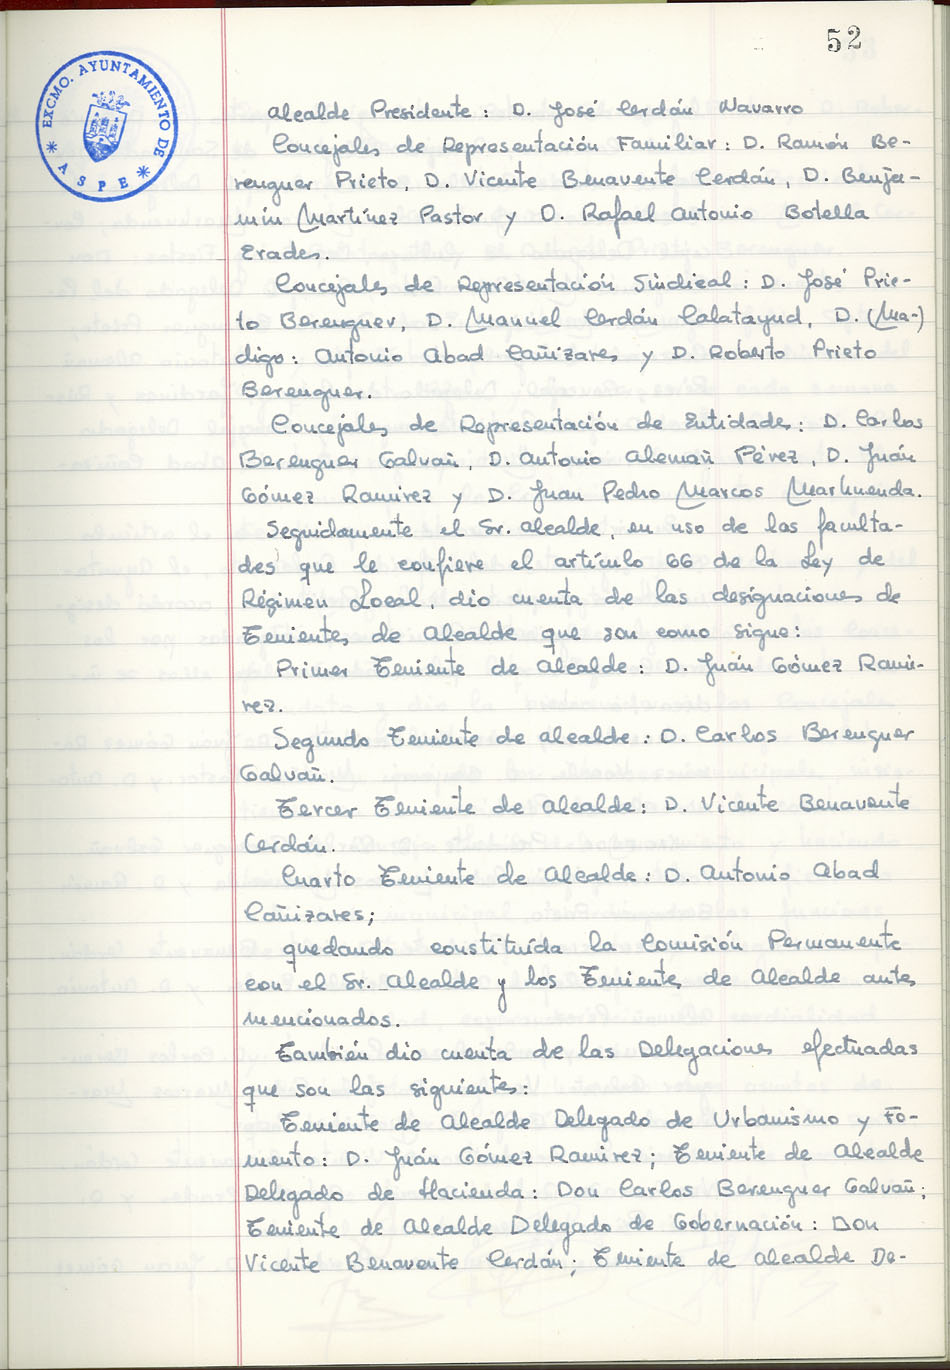 52
EXCMO. AYUNTAMIENTO DE
* ASPE *
Alcalde Presidente: D. José Cerdán Navarro
Concejales de Representación Familiar: D. Ramón Be-
renguer Prieto, D. Vicente Benavente Cerdán, D. Benja-
mín Martínez Pastor y D. Rafael Antonio Botella
Erades.
Concejales de Representación Sindical: D. José Prie-
to Berenguer, D. Manuel Cerdán Calatayud, D. (Ma-)
digo: Antonio Abad Cañizares y D. Roberto Prieto
Berenguer.
Concejales de Representación de Entidades: D. Carlos
Berenguer Galvañ, D. Antonio Alemañ Pérez, D. Juán
Gómez Ramirez y D. Juan Pedro Marcos Marhuenda.
Seguidamente el Sr. Alcalde, en uso de las faculta-
des que le confiere el artículo 66 de la Ley de
Régimen Local, dio cuenta de las designaciones de
Tenientes de Alcalde que son como sigue:
Primer Teniente de Alcalde: D. Juán Gómez Rami-
rez.
Segundo Teniente de Alcalde: D. Carlos Berenguer
Galvañ.
Tercer Teniente de Alcalde: D. Vicente Benavente
Cerdán.
Cuarto Teniente de Alcalde: D. Antonio Abad
Cañizares;
quedando constituída la Comisión Permanente
con el Sr. Alcalde y los Teniente de Alcalde antes
mencionados.
También dio cuenta de las Delegaciones efectuadas
que son las siguientes:
Teniente de Alcalde Delegado de Urbanismo y Fo-
mento: D. Juán Gómez Ramirez; Teniente de Alcalde
Delegado de Hacienda: Don Carlos Berenguer Galvañ;
Teniente de Alcalde Delegado de Gobernación: Don
Vicente Benavente Cerdán; Teniente de Alcalde De-